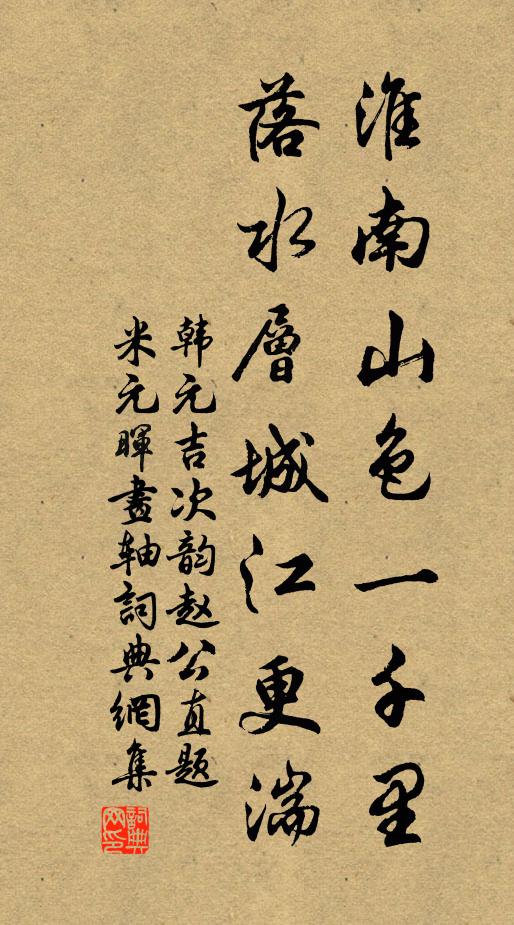 淮南山色一千里
落水層城江更湍
韩元吉次韵赵公直题
米元暉畫轴詞典網集
詞典
网印